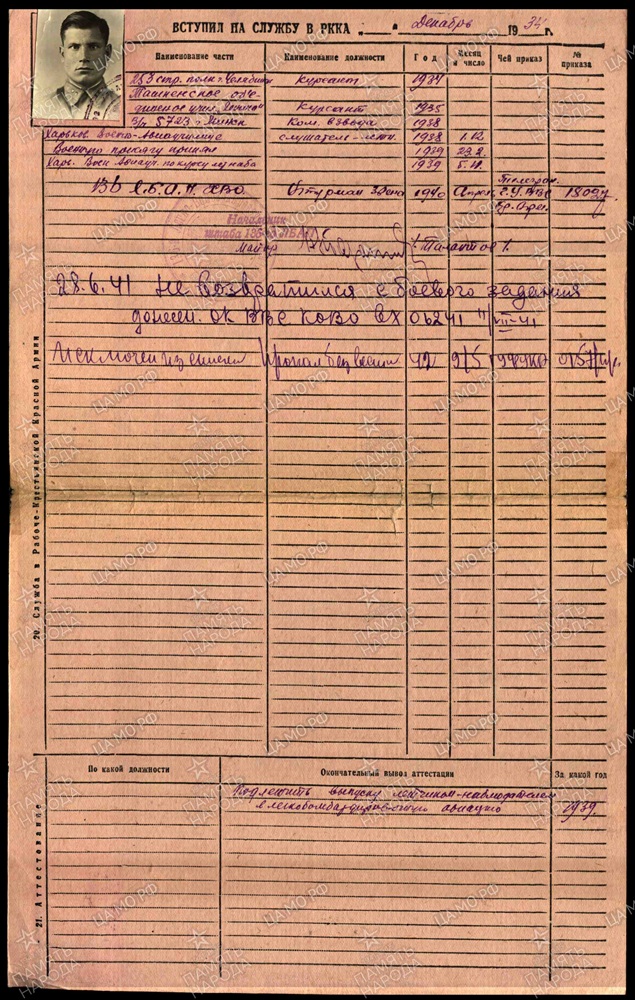 ВСТУПИЛ НА СЛУЖБУ В РККА „ “ Декабрь 1934 г.
Наименование части Наименование должности Год Месяц и число Чей приказ № приказа
стр. полк г. Челябинск Курсант 1934
Ташкентское объе-
диненое учил. Курсант 1935
В/ч 5723 г. Ком. взвода 1938
Харьков. Военно-Авиаучилище слушатель-летн. 1938 1.12.
Военную присягу принял 1939 23.2.
Харь. Воен. Авиауч. по курсу летнаба 1939 5.11.
Л.Б.А.П. ХВО Штурман Звена 1940 С.У. ВВС
Начальник
штаба ЛБАП
Майор
28.6.41 Не возвратился с боевого задания
донес. ОК ВВС КОВО вх 06241
Исключен из списков Пропал без вести 42 9/5
20. Служба в Рабоче-Крестьянской Красной Армии
По какой должности Окончательный вывод аттестации За какой год
Подлежить выпуску летчиком-наблюдателем
в легкобомбардировочную авиацию 1939.
21. Аттестование
ЦАМО.РФ
ПАМЯТЬ НАРОДА